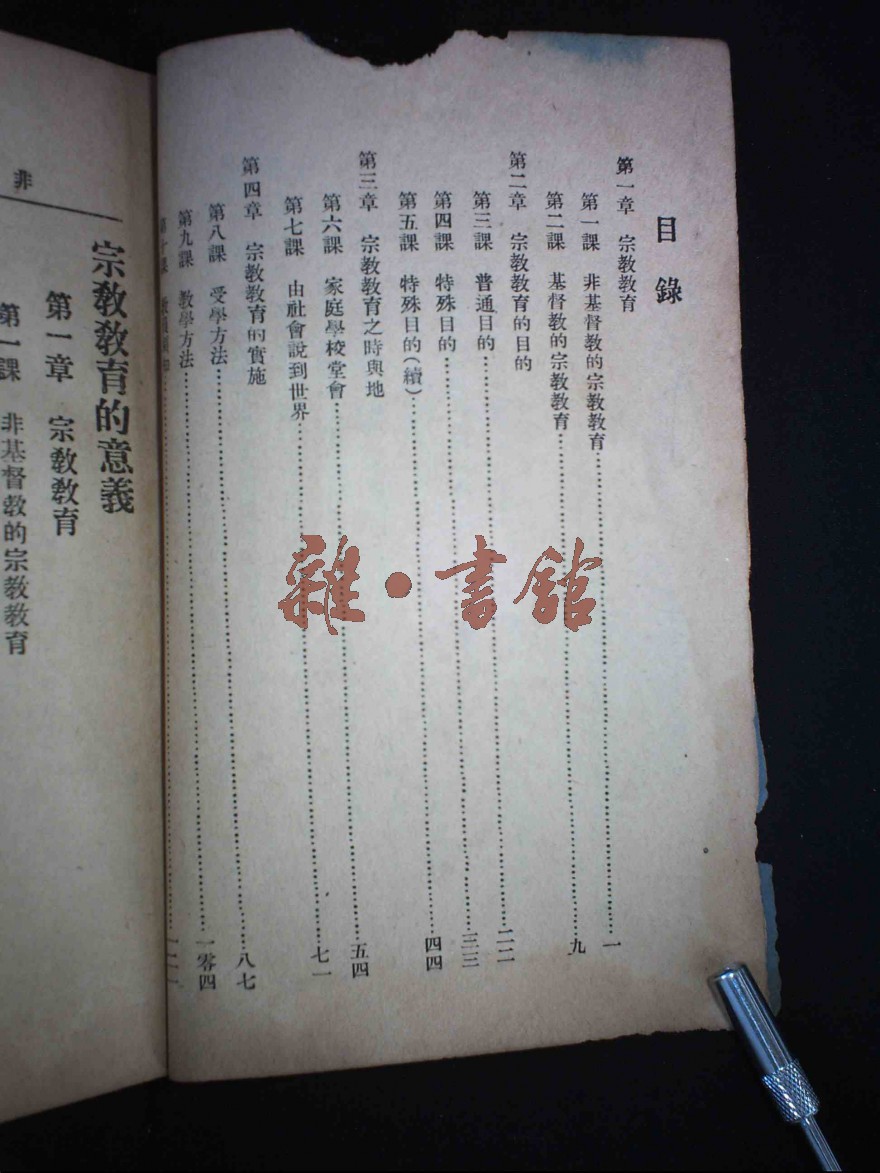 目錄
第一章 宗教教育
第一課 非基督教的宗教教育……一
第二課 基督教的宗教教育……九
第二章 宗教教育的目的
第三課 普通目的……二二
第四課 特殊目的……三三
第五課 特殊目的(續)……四四
第三章 宗教教育之時與地
第六課 家庭學校堂會……五四
第七課 由社會說到世界……七一
第四章 宗教教育的實施
第八課 受學方法……八七
第九課 教學方法……一零四
第十課
非
宗教教育的意義
第一章 宗教教育
第一課 非基督教的宗教教育
雜·書館